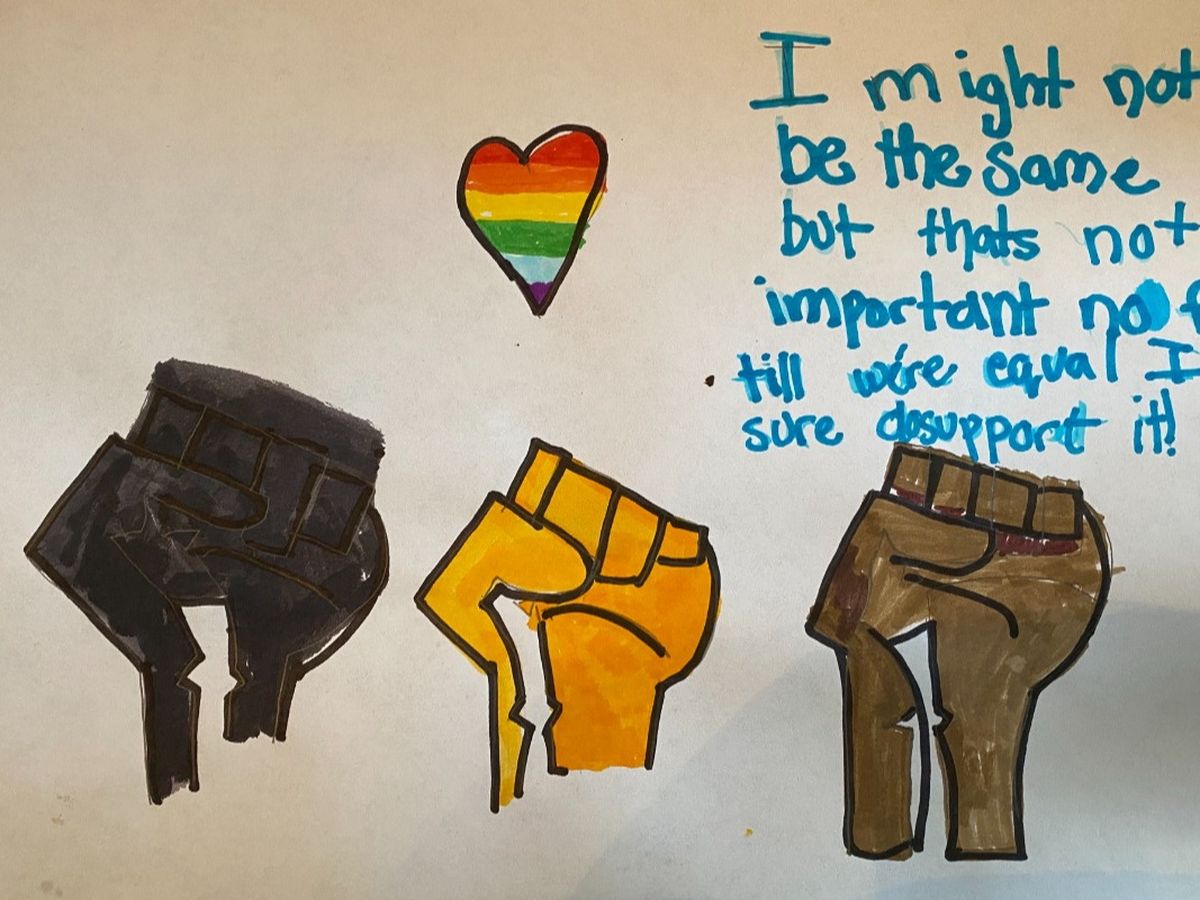 I might not
be the same
but thats not
important no
till we're equal I
sure do support it!